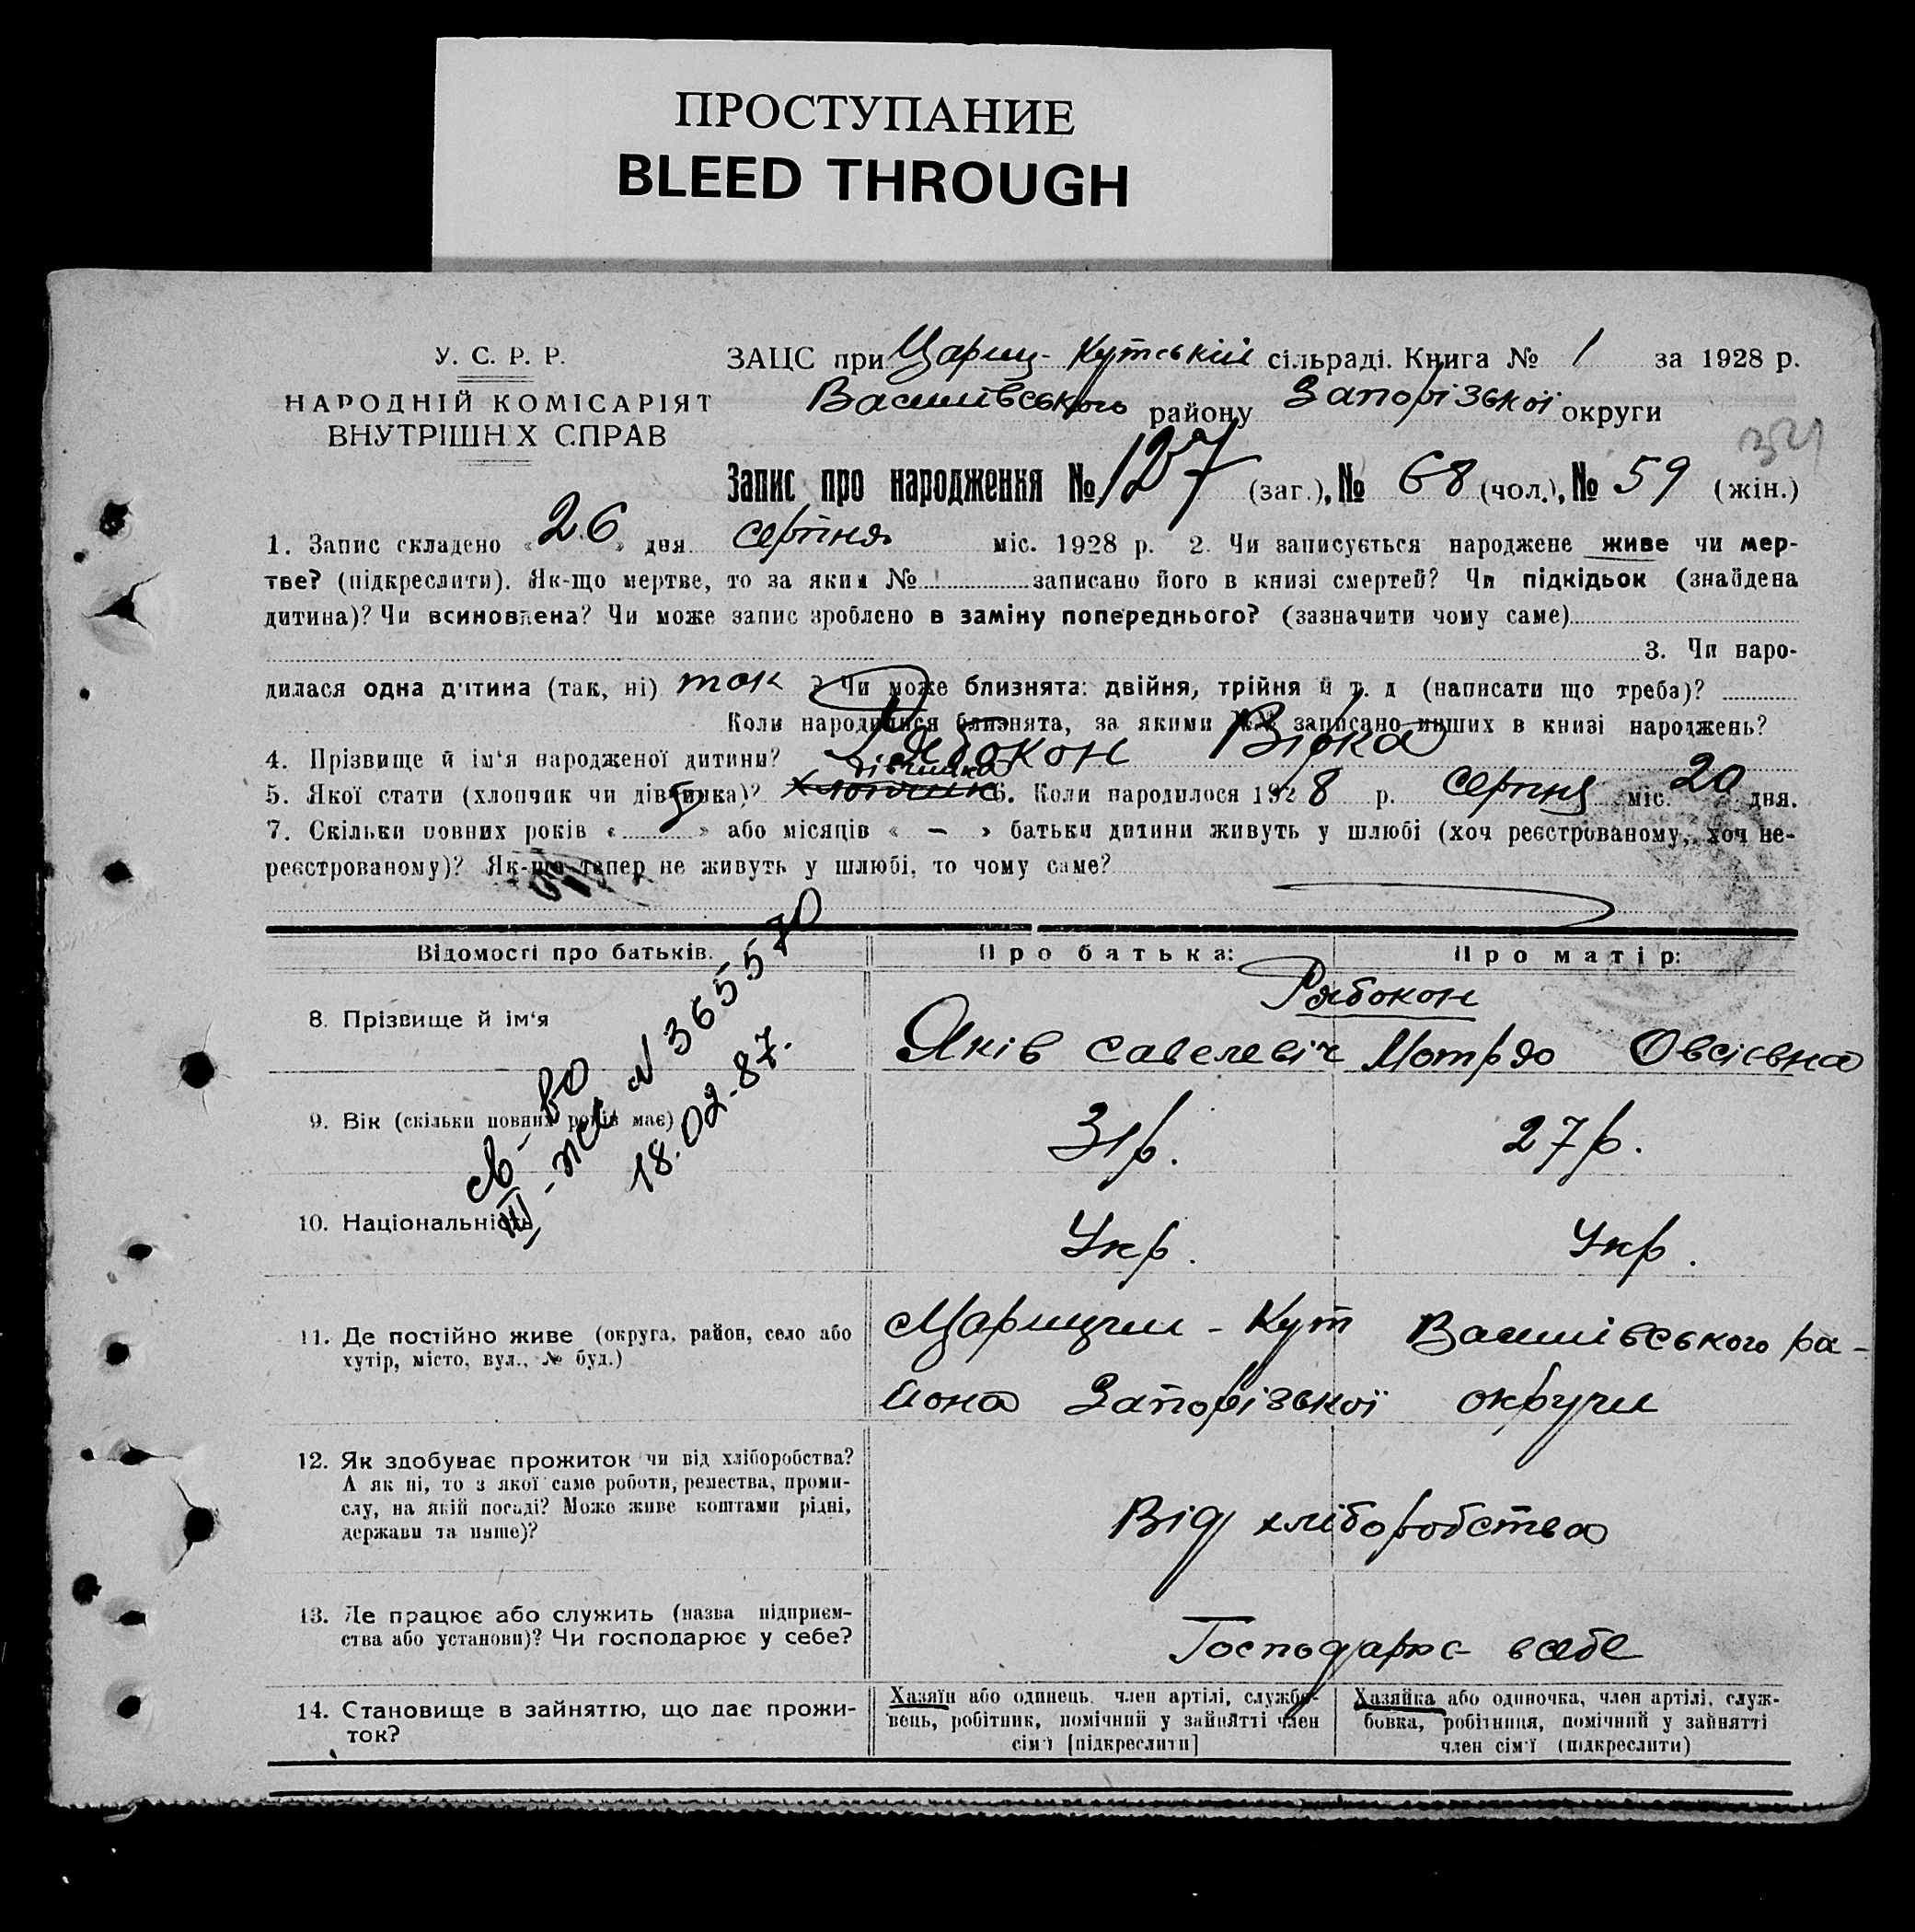 ПРОСТУПАНИЕ
BLEED THROUGH
У. С. Р. Р.
НАРОДНІЙ КОМІСАРІЯТ
ВНУТРІШН Х СПРАВ
ЗАЦС при Цариц-Кутській сільраді. Книга № 1 за 1928 р.
Василівського району Запорізької округи
Запис про народження № 127 (заг.), № 68 (чол.), № 59 (жін.)
1. Запис складено « 26 » дня серпня міс. 1928 р. 2. Чи записується народжене живе чи мер-
тве? (підкреслити). Як-що мертве, то за яким № записано його в книзі смертей? Чи підкідьок (знайдена
дитина)? Чи всиновлена? Чи може запис зроблено в заміну попереднього? (зазначити чому саме)
3. Чи наро-
дилася одна дитина (так, ні) так ? Чи може близнята: двійня, трійня й т. д (написати що треба)?
Коли народилися близнята, за якими записано инших в книзі народжень?
4. Прізвище й ім'я народженої дитини? Рябокон Вірка
5. Якої стати (хлопчик чи дівчинка)? хлопчик дівчинка 6. Коли народилося 1928 р. серпня міс. 20 дня.
7. Скільки повних років « 5 » або місяців « – » батьки дитини живуть у шлюбі (хоч реєстрованому, хоч не-
реєстрованому)? Як-що тепер не живуть у шлюбі, то чому саме?
Відомості про батьків.
Про батька:
Про матір:
Рябокон
8. Прізвище й ім'я
Яків Савелевіч
Мотря Овсієвна
9. Вік (скільки повних років має)
31 р.
27 р.
10. Національність
Укр.
Укр.
св-во
III-жс № 365570
18.02-87.
11. Де постійно живе (округа, район, село або
хутір, місто, вул., № буд.)
Царицин-Кут Василівського ра-
йона Запорізької округи
12. Як здобуває прожиток чи від хліборобства?
А як ні, то з якої саме роботи, ремества, проми-
слу, на якій посаді? Може живе коштами рідні,
держави та инше)?
Від хліборобства
13. Де працює або служить (назва підприєм-
ства або установи)? Чи господарює у себе?
Господарює в себе
14. Становище в зайняттю, що дає прожи-
ток?
Хазяїн або одинець, член артілі, службо-
вець, робітник, помічний у зайнятті член
сім'ї [підкреслити]
Хазяйка або одиночка, член артілі, служ-
бовка, робітниця, помічний у зайнятті
член сім'ї (підкреслити)